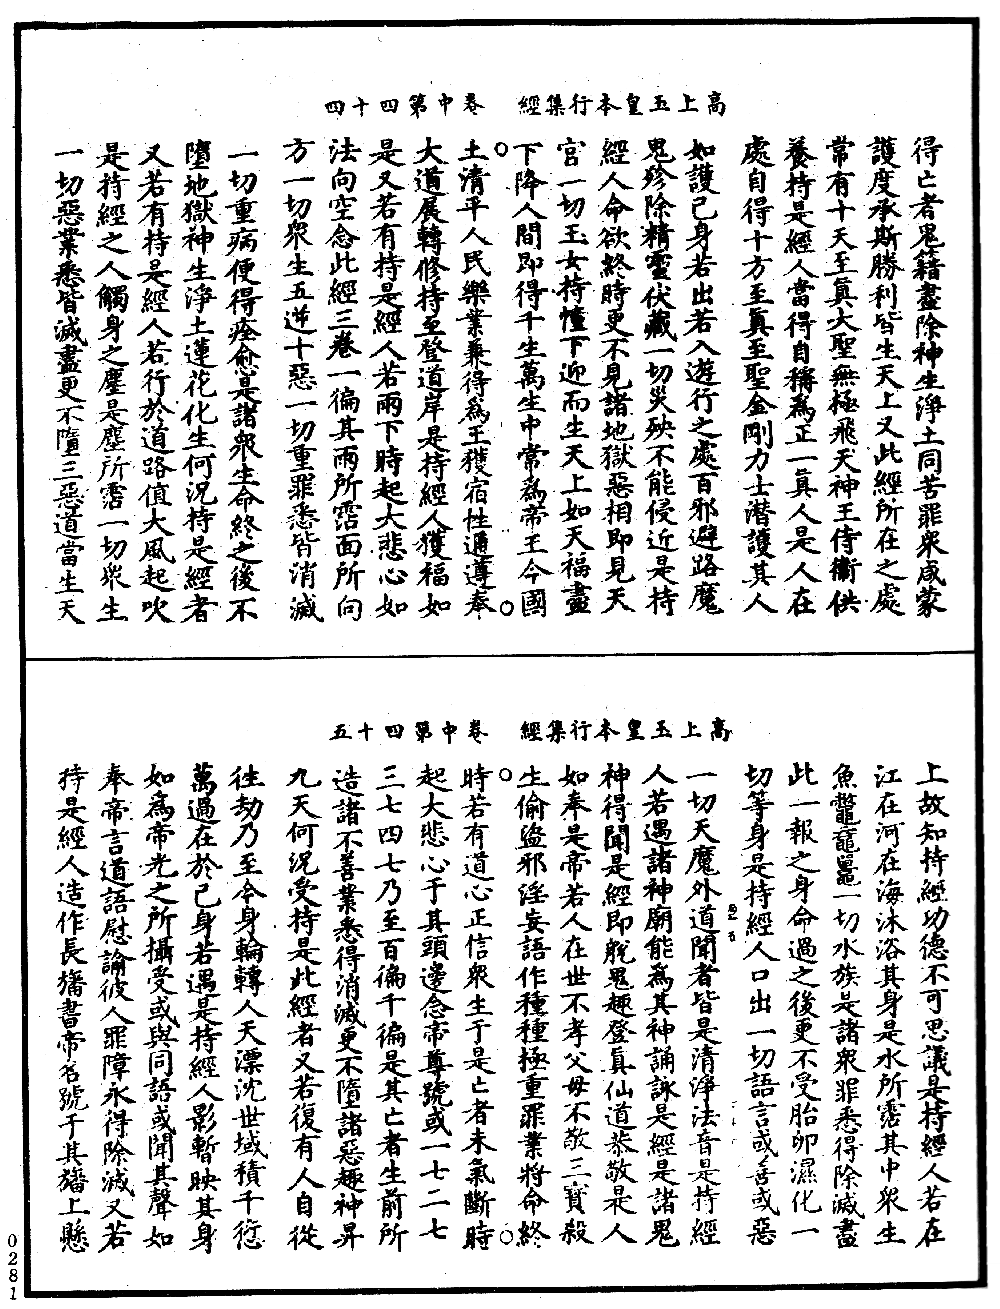 高上玉皇本行集經　卷中第四十四
得亡者鬼籍盡除神生淨土同苦罪衆咸蒙
護度承斯勝利皆生天上又此經所在之處
常有十天至眞大聖無極飛天神王侍衞供
養持是經人當得自稱爲正一眞人是人在
處自得十方至眞至聖金剛力士潛護其人
如護己身若出若入遊行之處百邪避路魔
鬼殄除精靈伏藏一切災殃不能侵近是持
經人命欲終時更不見諸地獄惡相即見天
宮一切玉女持幢下迎而生天上如天福盡
下降人間即得千生萬生中常爲帝王令國
土清平人民樂業兼得爲王獲宿性通遵奉
大道展轉修持至登道岸是持經人獲福如
是又若有持是經人若雨下時起大悲心如
法向空念此經三卷一徧其雨所霑面所向
方一切衆生五逆十惡一切重罪悉皆消滅
一切重病便得痊愈是諸衆生命終之後不
墮地獄神生淨土蓮花化生何況持是經者
又若有持是經人若行於道路值大風起吹
是持經之人觸身之塵是塵所霑一切衆生
一切惡業悉皆滅盡更不墮三惡道當生天
高上玉皇本行集經　卷中第四十五
上故知持經功德不可思議是持經人若在
江在河在海沐浴其身是水所霑其中衆生
魚鼈黿鼉一切水族是諸衆罪悉得除滅盡
此一報之身命過之後更不受胎卵濕化一
切等身是持經人口出一切語言或善或惡
一切天魔外道聞者皆是清淨法音是持經
人若遇諸神廟能爲其神誦詠是經是諸鬼
神得聞是經即脫鬼趣登眞仙道恭敬是人
如奉是帝若人在世不孝父母不敬三寶殺
生偷盜邪淫妄語作種種極重罪業將命終
時若有道心正信衆生于是亡者未氣斷時
起大悲心于其頭邊念帝尊號或一七二七
三七四七乃至百徧千徧是其亡者生前所
造諸不善業悉得消滅更不墮諸惡趣神昇
九天何況受持是此經者又若復有人自從
往劫乃至今身輪轉人天漂沈世域積千愆
萬過在於己身若遇是持經人影暫映其身
如爲帝光之所攝受或與同語或聞其聲如
奉帝言道語慰諭彼人罪障永得除滅又若
持是經人造作長旛書帝名號于其旛上懸
0281